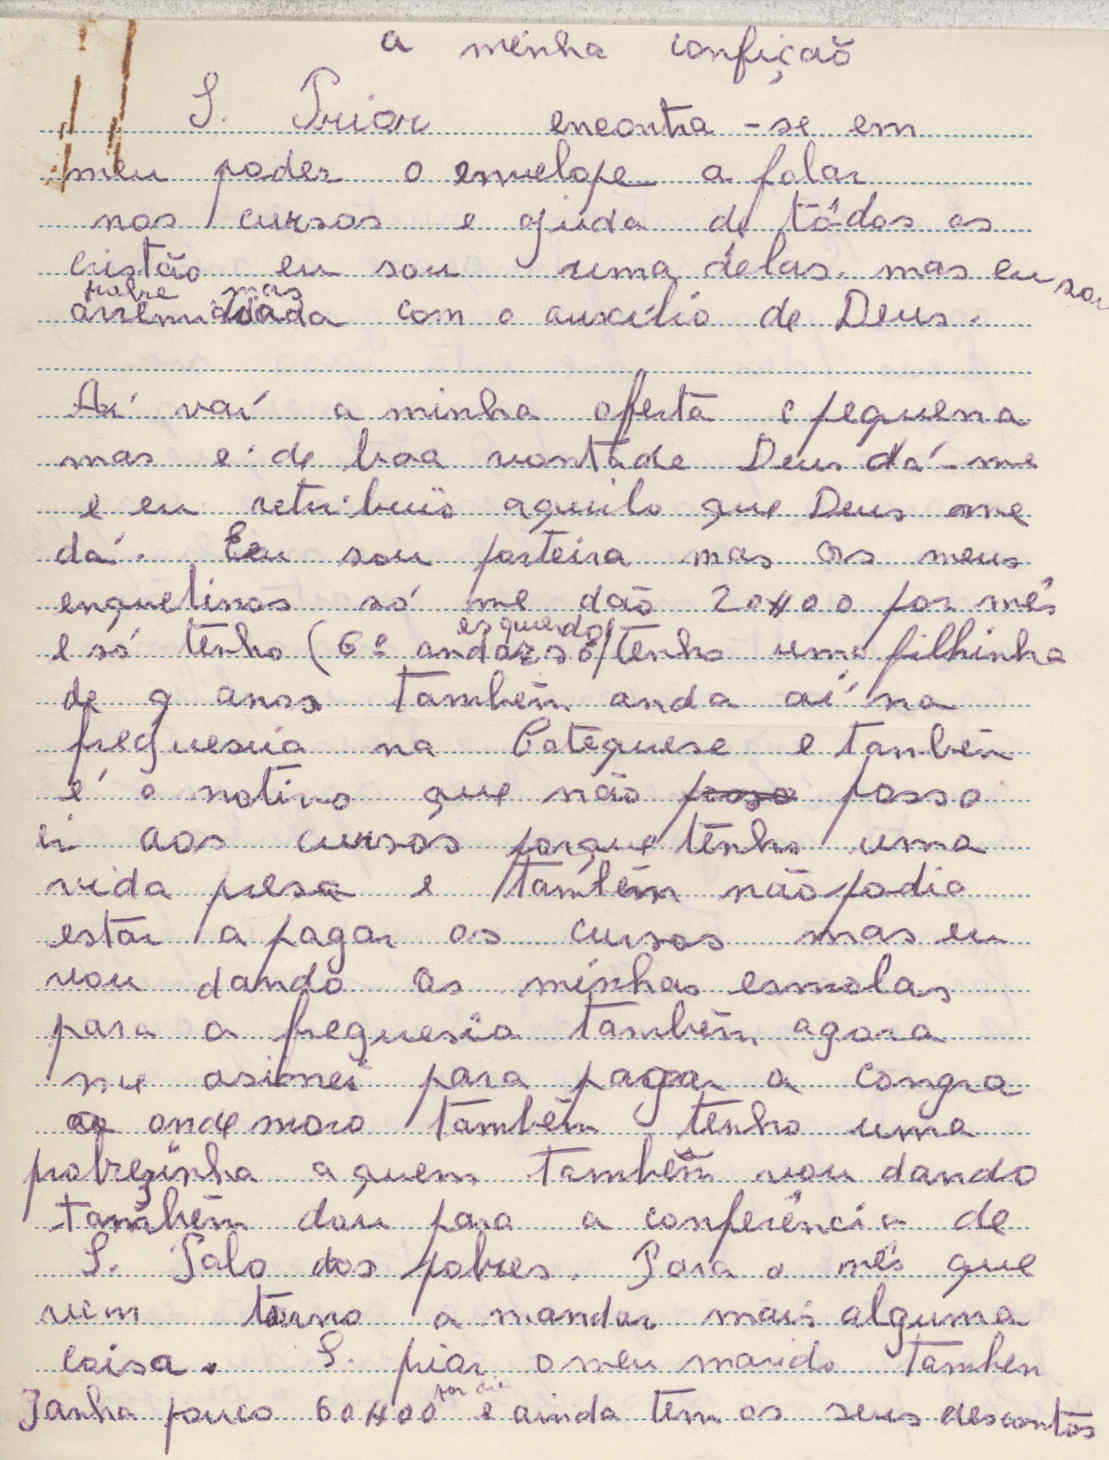 a minha confição
S. Prior encontra-se em
meu poder o envelope a falar
nos cursos e ajuda de tôdos os
cristão eu sou uma délas. mas eu sou
pobre mas
arremediada com o auxílio de Deus.
Aí vaí a minha oferta e pequena
mas e de boa vontade Deus dá-me
e eu retribuio aquilo que Deus me
dá. Eu sou porteira mas os meus
enquelinos só me daõ 20$00 por mês
esquerdo
e só tenho (6º andar só) tenho uma filhinha
de 9 anos também anda aí na
freguesia na Catequese e também
é o motivo que não posso posso
ir aos cursos porque tenho uma
vida presa e também não podia
estar a pagar os cursos mas eu
vou dando as minhas esmolas
para a freguesia também agora
me asinei para pagar a congra
onde moro também tenho uma
pobrezinha aquem também vou dando
também dou para a conferência de
S. Palo dos pobres. Para o mês que
vem torno a mandar mais alguma
coisa. S. prior o meu marido tamben
por dia
Janha pouco 60$00 e ainda tem os seus descontos